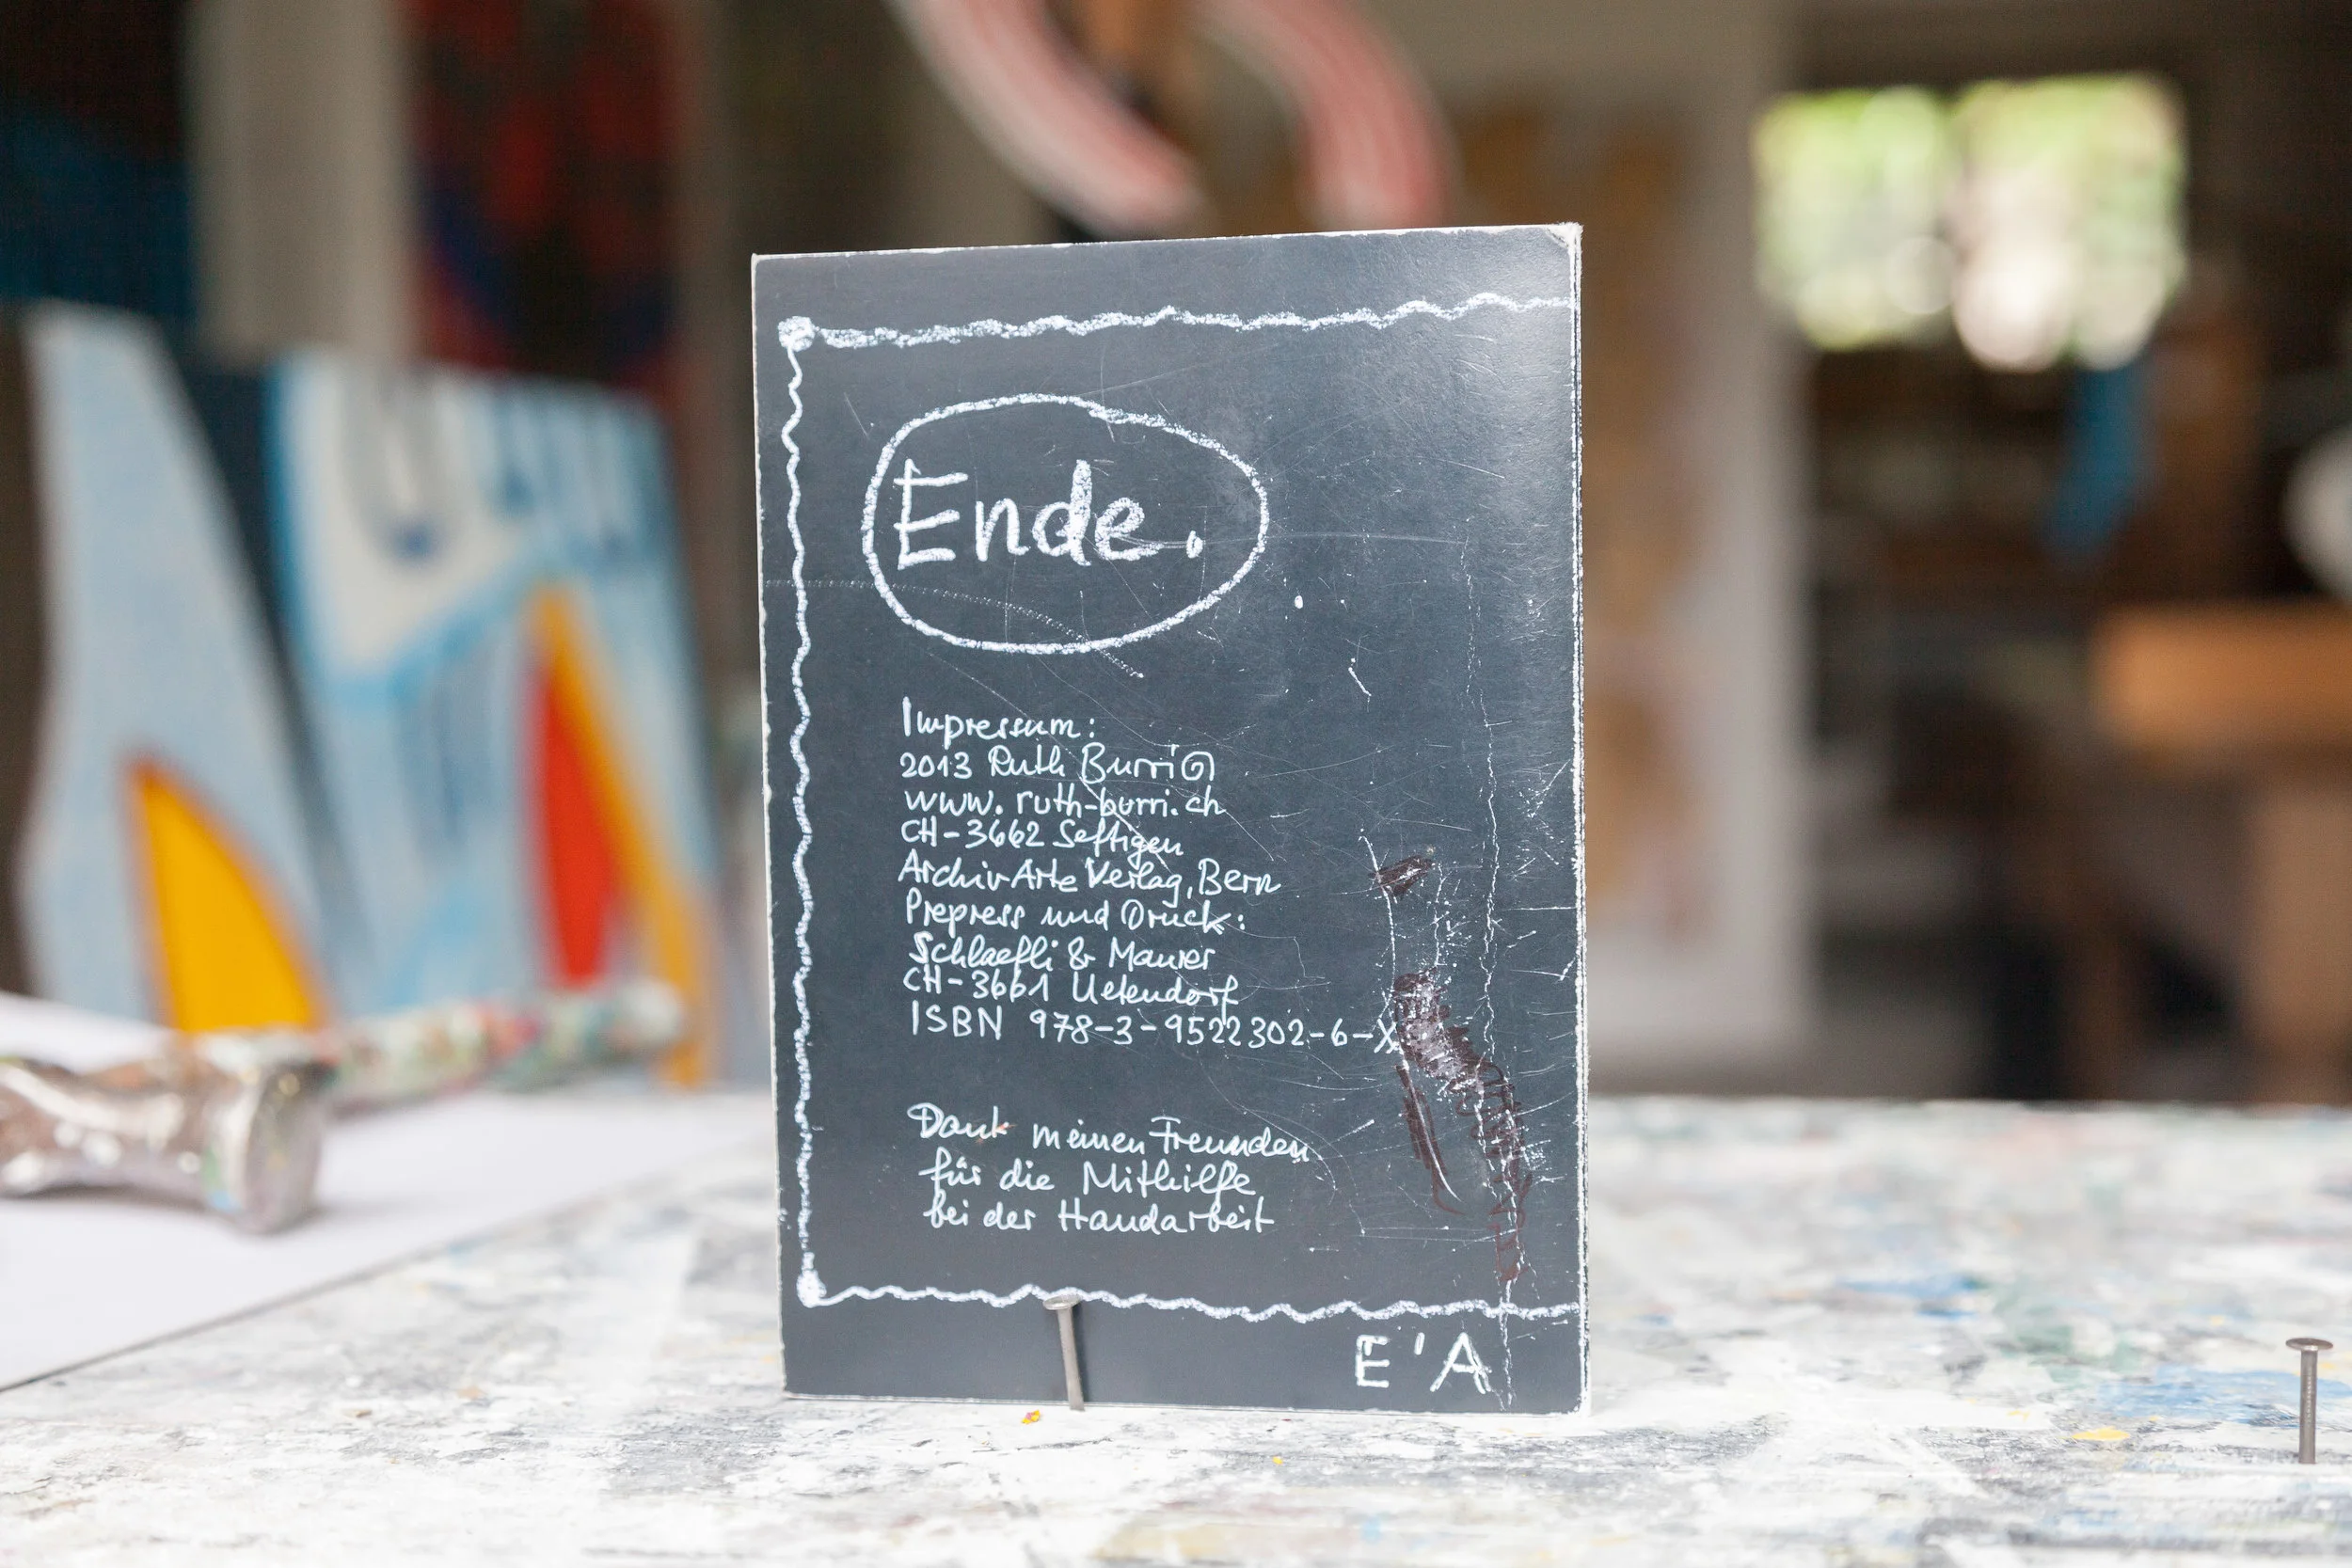 Ende.
Impressum:
2013 Ruth Burri ©
www.ruth-burri.ch
CH-3662 Seftigen
ArchivArte Verlag, Bern
Prepress und Druck:
Schlaefli & Maurer
CH-3661 Uetendorf
ISBN 978-3-9522302-6-X
Dank meinen Freunden
für die Mithilfe
bei der Handarbeit
E'A